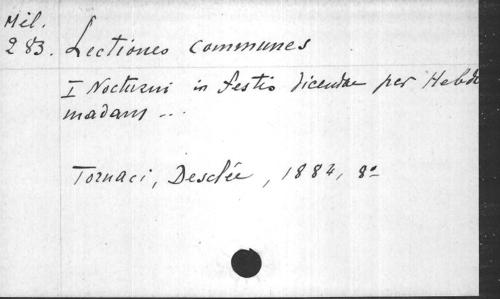 Mil.
283. Lectiones communes
I Nocturni in festis dicendae per Hebdo
madam ...
Tornaci, Desclée, 1884, 8º